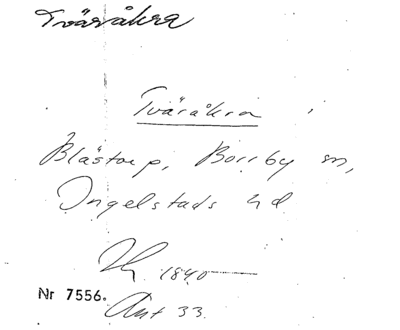 Tväråkra
Tväråkra
Blästorp, Borrby sn,
Ingelstads hd
1840
Nr 7556.
Akt 33.